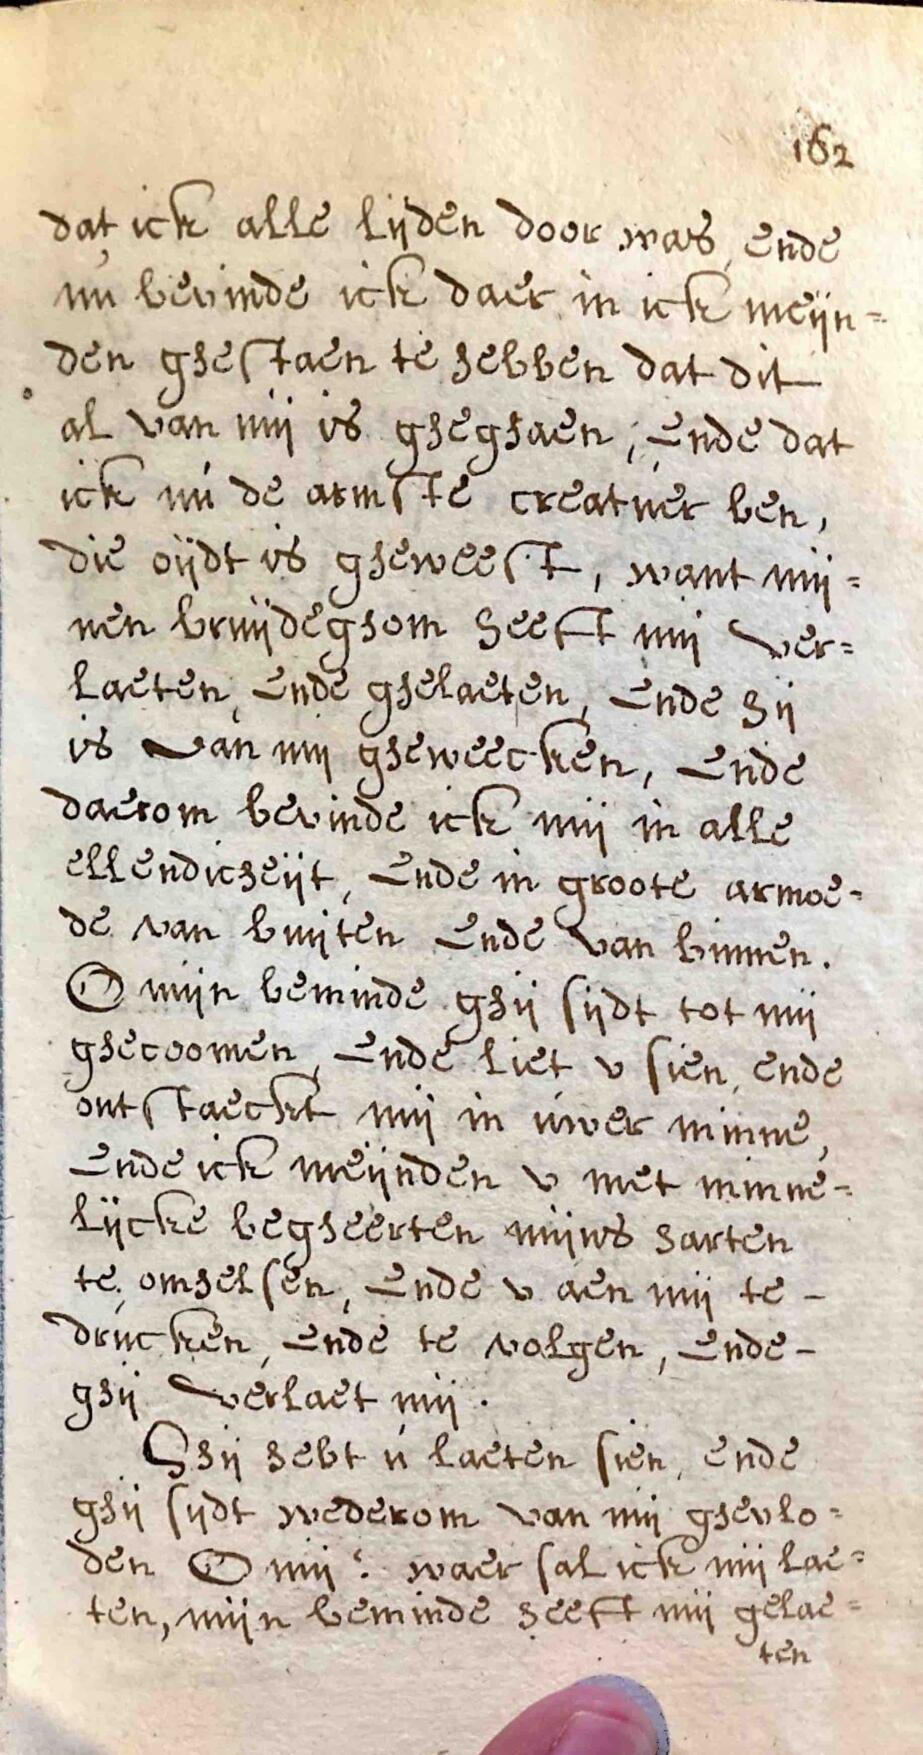 162
dat ick alle lijden door was, ende
nu bevinde ick daer in ick meijn=
den ghestaen te hebben dat dit
al van mij is gheghaen; Ende dat
ick nú de armste creatuer ben,
die oijdt is gheweest, want mij=
nen bruijdeghom heeft mij ver=
laeten, Ende ghelaeten, Ende hij
is van mij gheweecken, Ende
daerom bevinde ick mij in alle
ellendicheijt, Ende in groote armoe=
de van buijten Ende van binnen.
O mijn beminde ghij sijdt tot mij
ghecoomen, Ende liet v sien, ende
ontstaeckt mij in úwer minne,
Ende ick meijnden v met minne=
lijcke begheerten mijns harten
te omhelsen, Ende v aen mij te -
drucken, Ende te volgen, Ende -
ghij verlaet mij.
Ghij hebt ú laeten sien, ende
ghij sijdt wederom van mij ghevlo=
den O mij? waer sal ick mij lae=
ten, mijn beminde heeft mij gelae=
ten